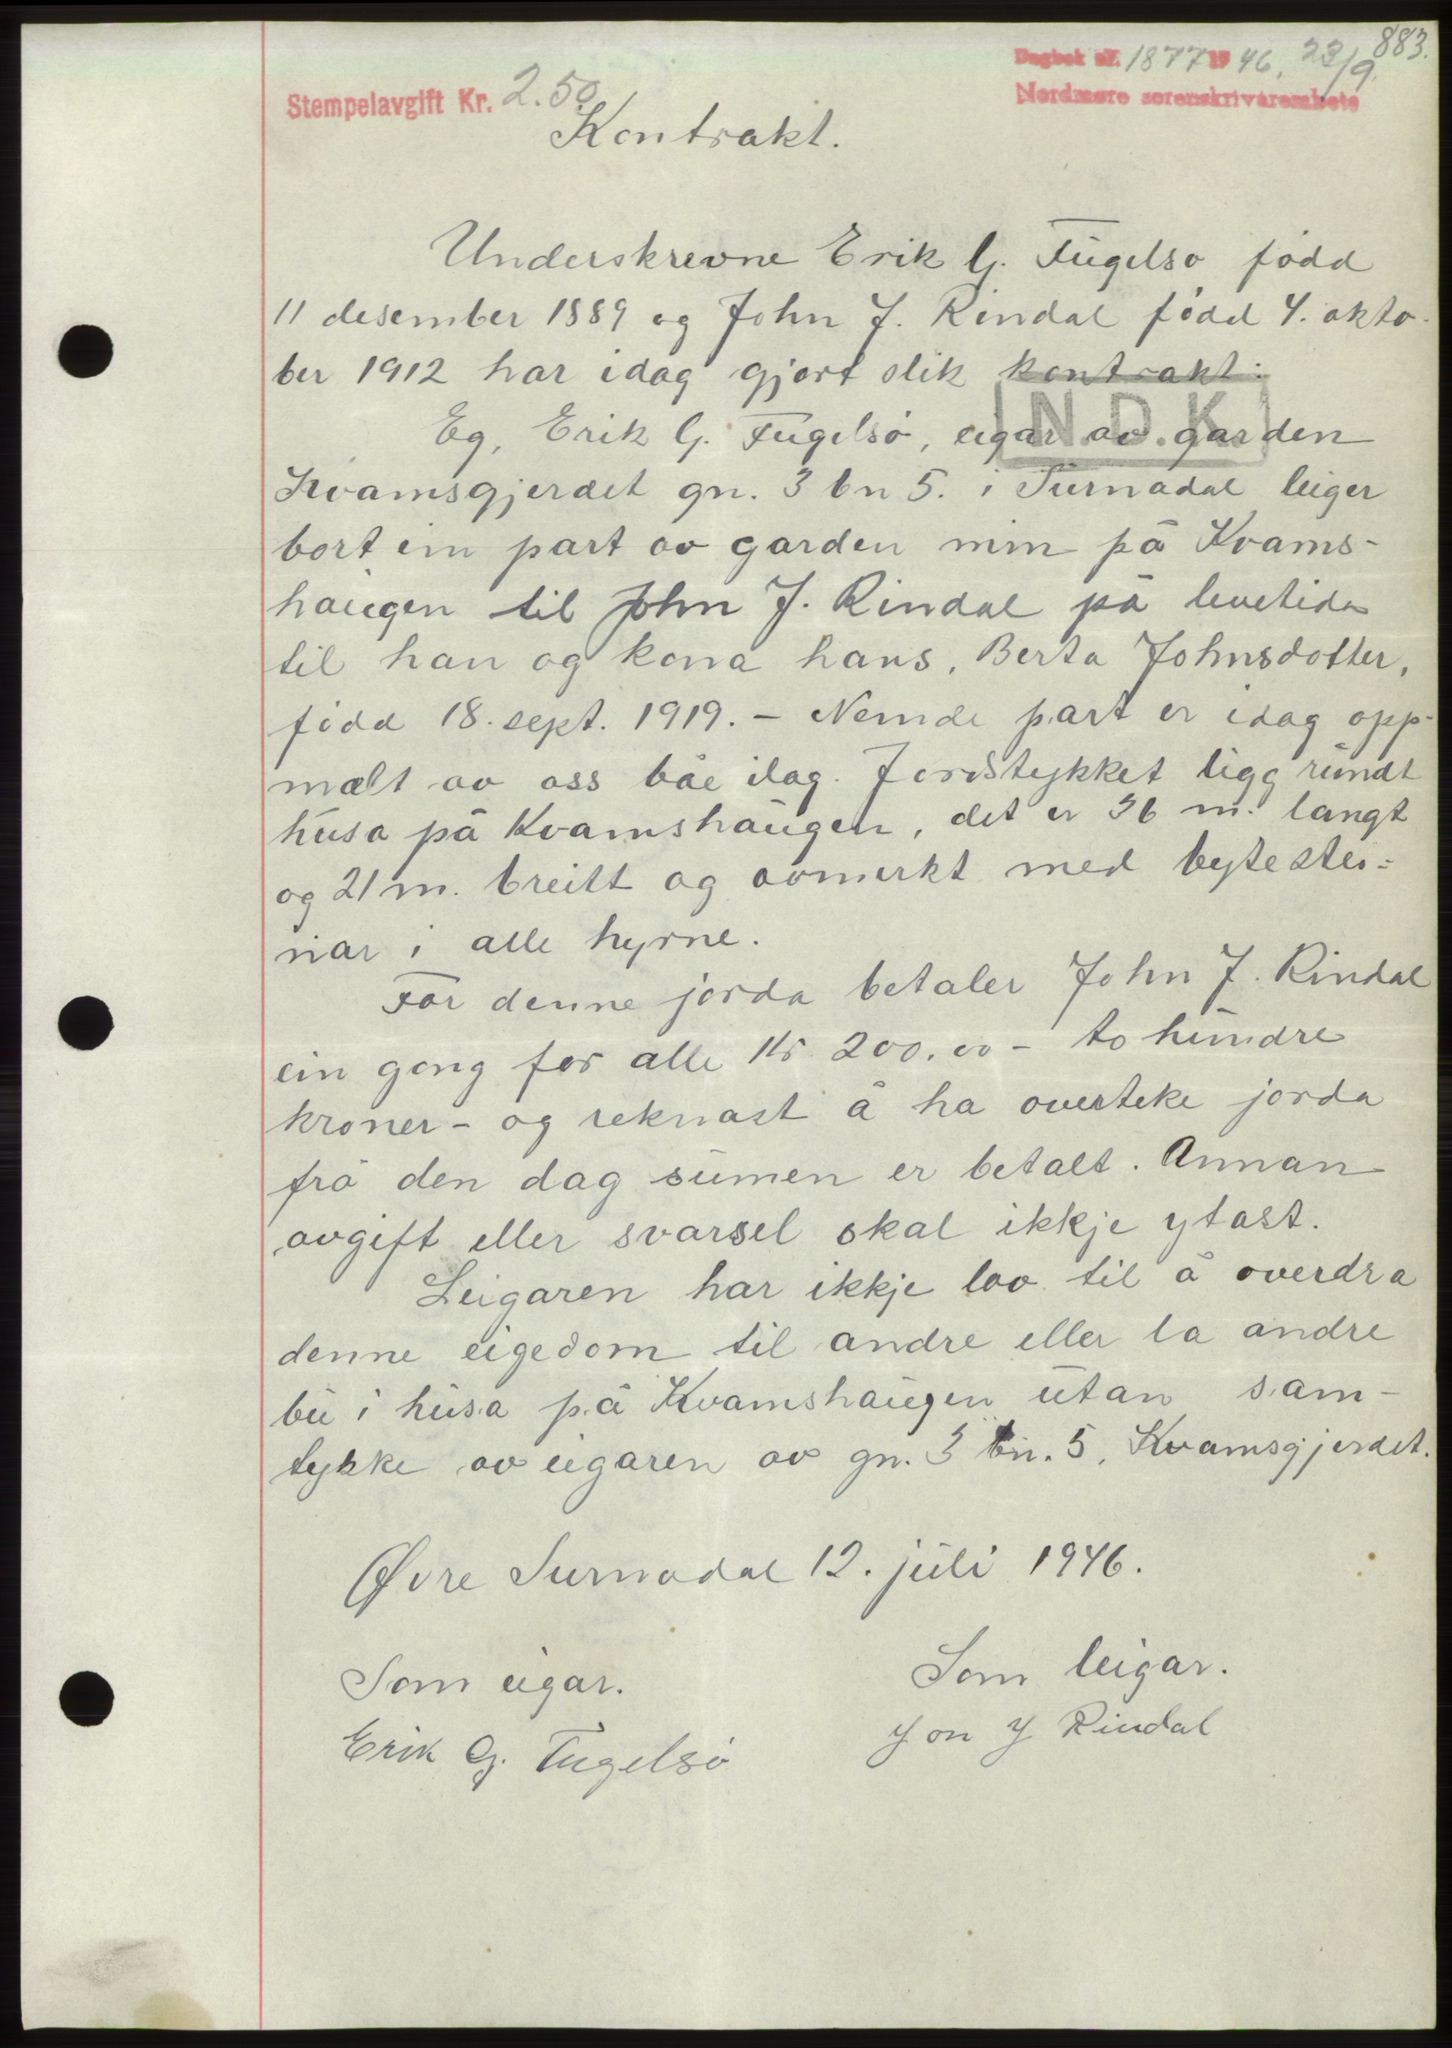 883.
Dagbok nr. 1877 1946, 23/9.
Nordmøre sorenskrivarembete
Stempelavgift Kr. 2.50
Kontrakt.
Underskrevne Erik G. Fugelsø fødd
11 desember 1889 og John J. Rindal fødd 4. okto-
ber 1912 har idag gjort slik kontrakt:
N.D.K.
Eg, Erik G. Fugelsø, eigar av garden
Kvamsgjerdet gn. 3 bn 5. i Surnadal leiger
bort ein part av garden min på Kvams-
haugen til John J. Rindal på levetida
til han og kona hans, Berta Johnsdotter,
fødd 18. sept. 1919. - Nemde part er idag opp-
mælt av oss båe ilag. Jordstykket ligg rundt
husa på Kvamshaugen, det er 36 m. langt
og 21 m. breitt og avmerkt med bytestei-
nar i alle hyrne.
For denne jorda betaler John J. Rindal
ein gong for alle kr 200.00 - to hundre
kroner - og reknast å ha overteke jorda
frå den dag sumen er betalt. Annan
avgift eller svarsel skal ikkje ytast.
Leigaren har ikkje lov til å overdra
denne eigedom til andre eller la andre
bu i husa på Kvamshaugen utan sam-
tykke av eigaren av gn. 3 bn. 5, Kvamsgjerdet.
Øvre Surnadal 12. juli 1946.
Som eigar.
Erik G. Fugelsø
Som leigar.
Jon J Rindal